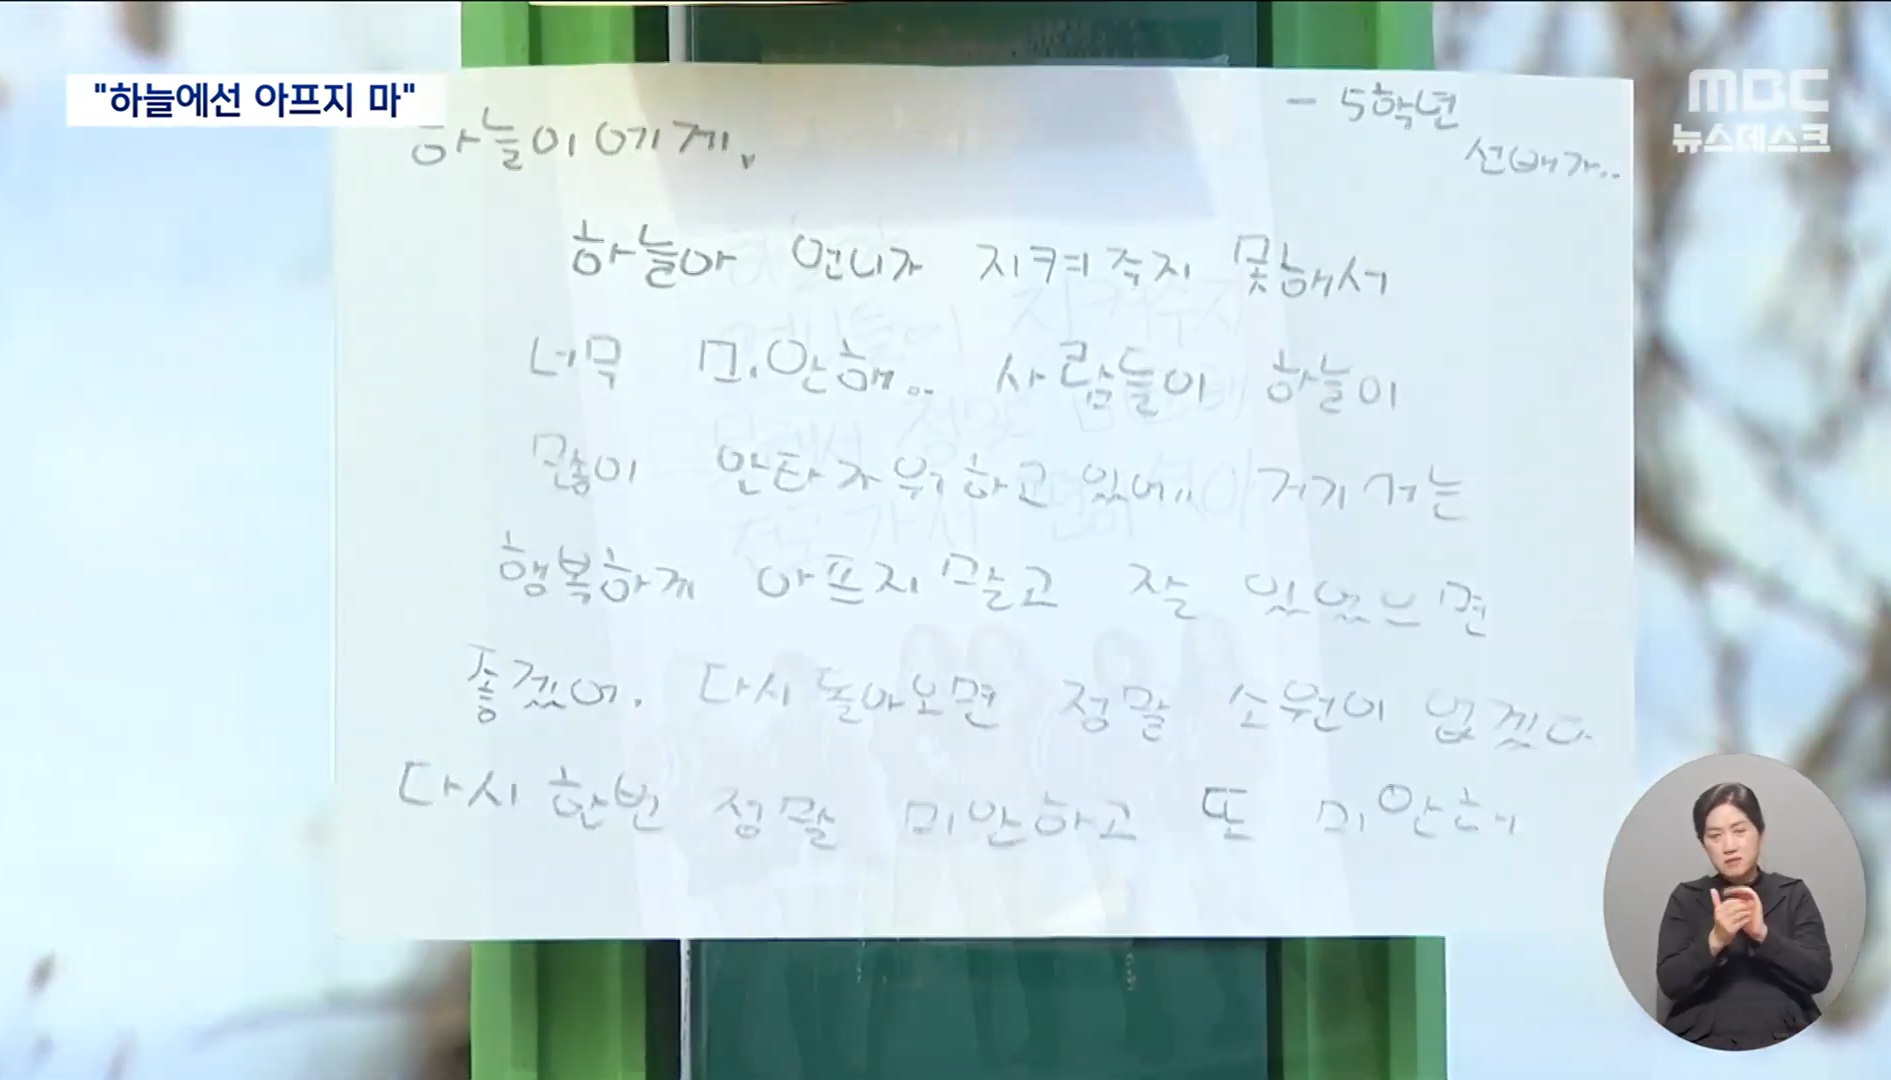 "하늘에선 아프지 마"
MBC
뉴스데스크
- 5학년
선배가..
하늘이에게.
하늘아 언니가 지켜주지 못해서
너무 미안해.. 사람들이 하늘이
많이 안타까워하고 있어.. 거기서는
행복하게 아프지말고 잘 있었으면
좋겠어. 다시 돌아보면 정말 소원이 없겠다
다시한번 정말 미안하고 또 미안해